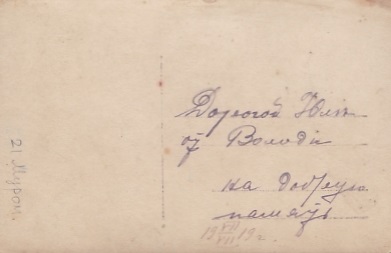 Дорогой Юле
от Володи
на добрую
память
19 VII 19 г.
21 Муром.